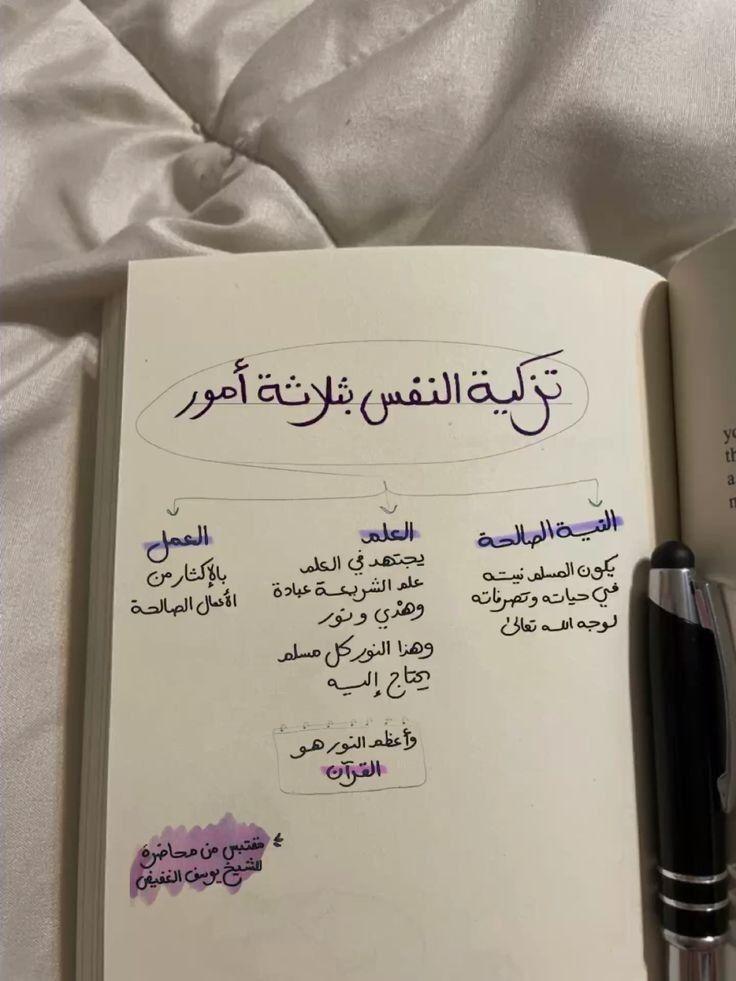 تزكية النفس بثلاثة أمور
النية الصالحة
يكون المسلم نيته
في حياته وتصرفاته
لوجه الله تعالى
العلم
يجتهد في العلم
علم الشريعة عبادة
وهدي ونور
وهذا النور كل مسلم
يحتاج إليه
وأعظم النور هو
القرآن
العمل
بالإكثار من
الأعمال الصالحة
مقتبس من محاضرة
للشيخ يوسف الغفيص
yo
th
a